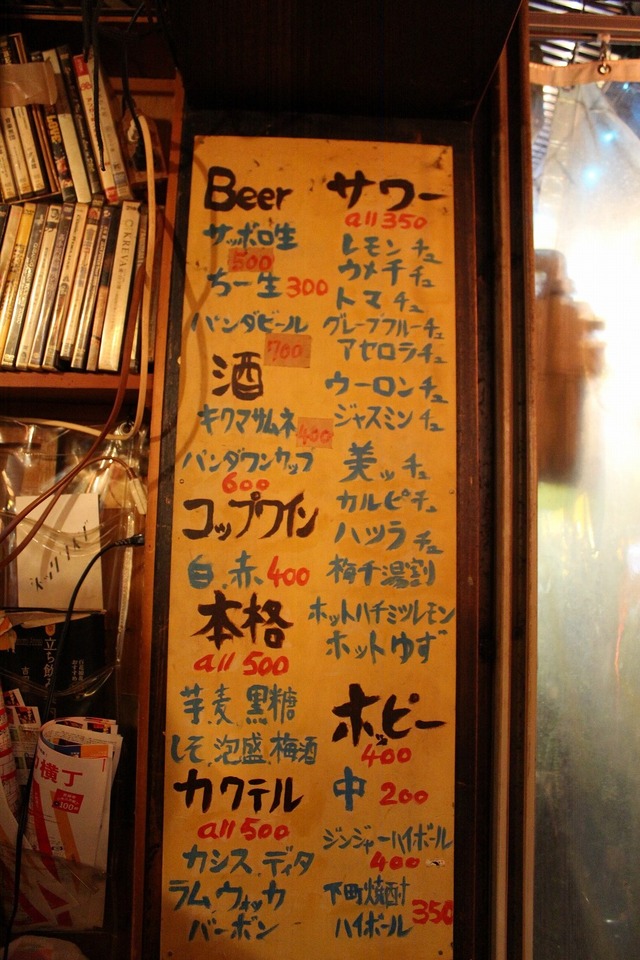 Beer
サッポロ生
500
ちー生 300
パンダビール
700
酒
キクマサムネ
400
パンダワンカップ
600
コップワイン
白 赤 400
本格
all 500
芋 麦 黒糖
しそ 泡盛 梅酒
カクテル
all 500
カシス ディタ
ラム ウォッカ
バーボン
サワー
all 350
レモンチュ
ウメチチュ
トマチュ
グレープフルーチュ
アセロラチュ
ウーロンチュ
ジャスミンチュ
美ッチュ
カルピチュ
ハツラチュ
梅干湯割
ホットハチミツレモン
ホットゆず
ホッピー
400
中 200
ジンジャーハイボール
400
下町焼酎
ハイボール 350
C:KREVA
横丁
立ち飲み